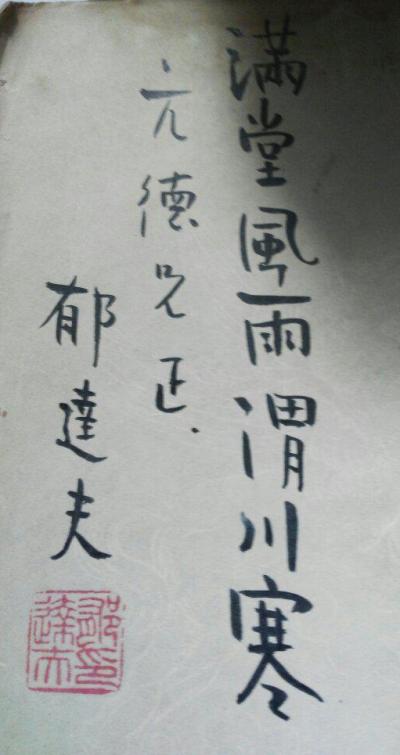 滿堂風雨渭川寒
亢德兄正.
郁達夫
郁印
達夫